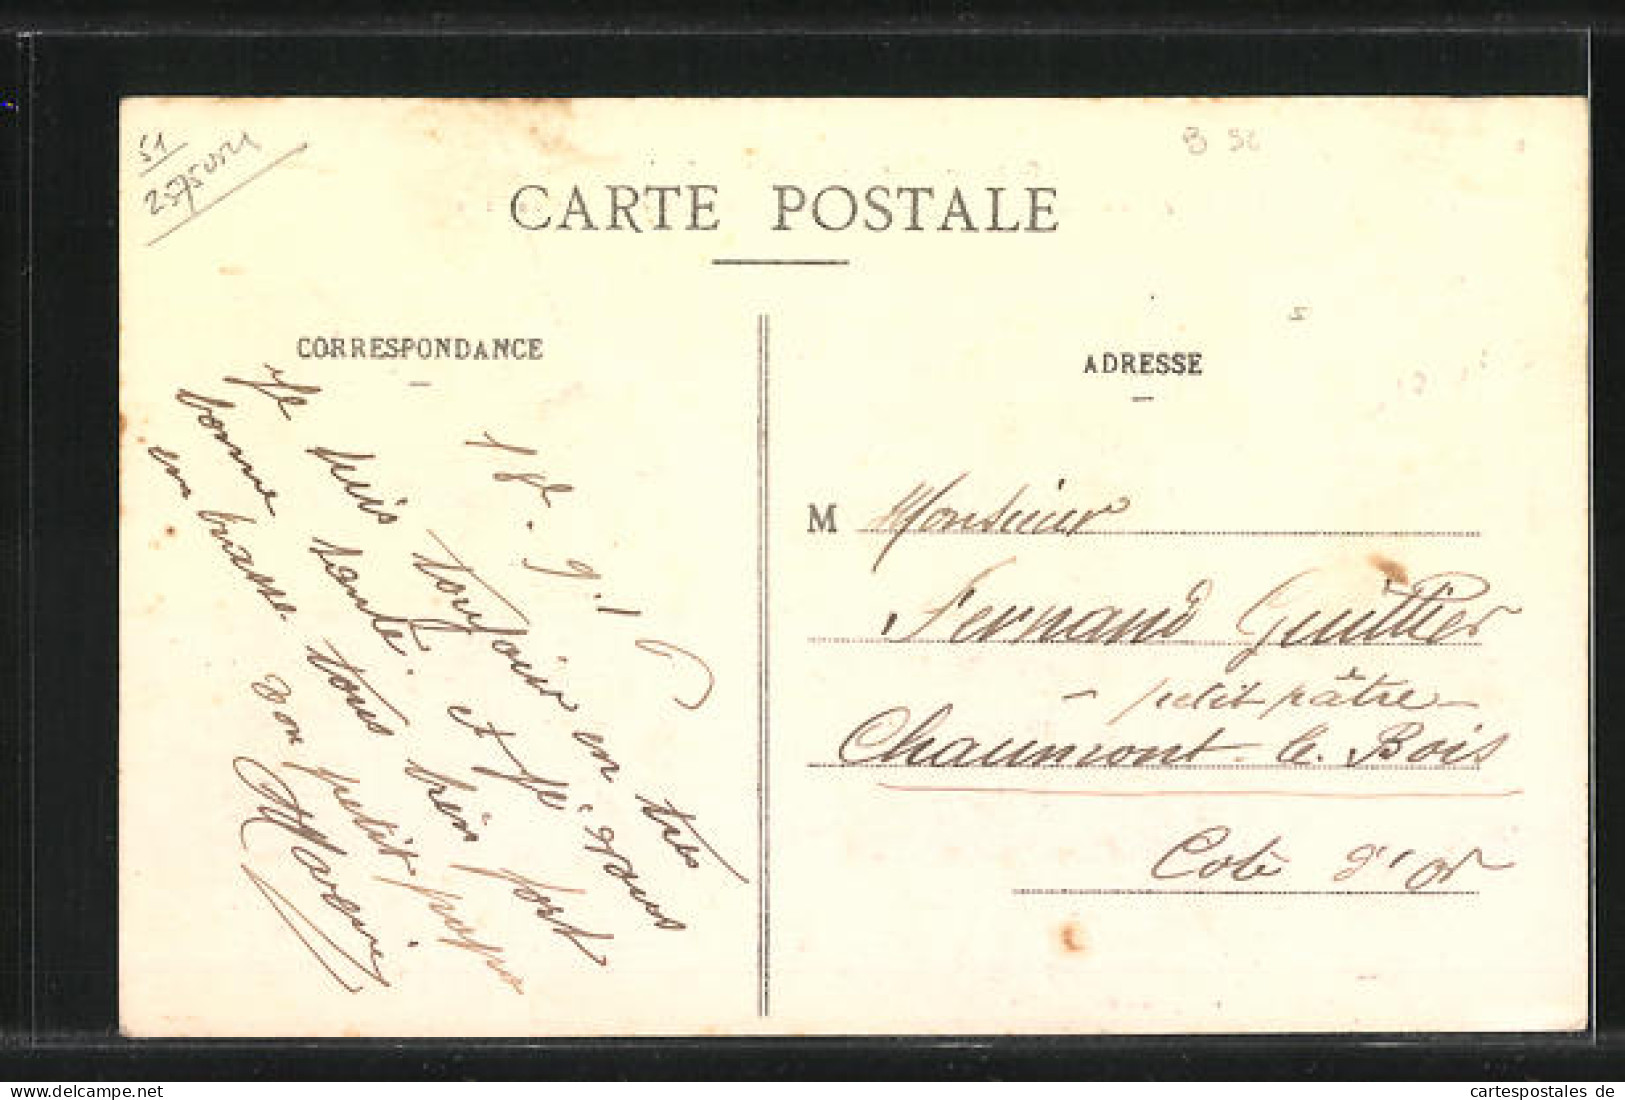 51
B 52
CARTE POSTALE
CORRESPONDANCE
ADRESSE
18.9.16
Je suis toujours en très
bonne santé. et je vous
embrasse tous bien fort
ton petit papa
M Monsieur
Fernand Guittier
- petit pâtre -
Chaumont-le-Bois
Côte d'Or
cartespostales de